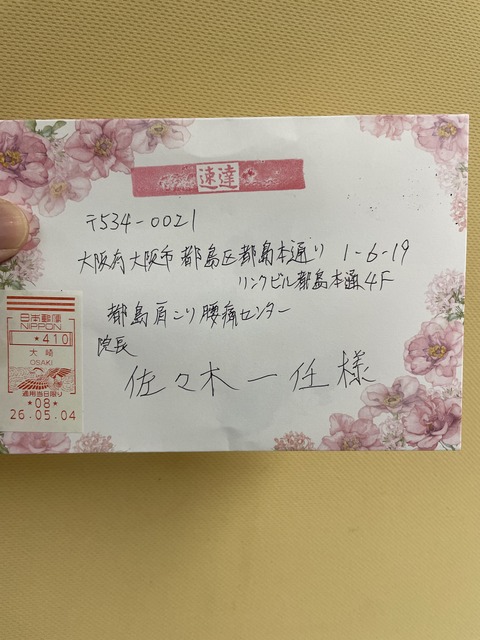 速達
〒534-0021
大阪府大阪市都島区都島本通り 1-6-19
リンクビル都島本通4F
都島肩こり腰痛センター
院長
佐々木一任様
日本郵便
NIPPON
★410
大崎
OSAKI
適用当日限り
★08★
26.05.04